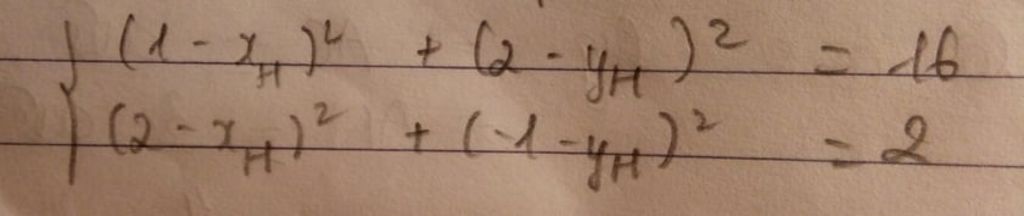 { (1 - x_H)² + (2 - y_H)² = 16
(2 - x_H)² + (-1 - y_H)² = 2